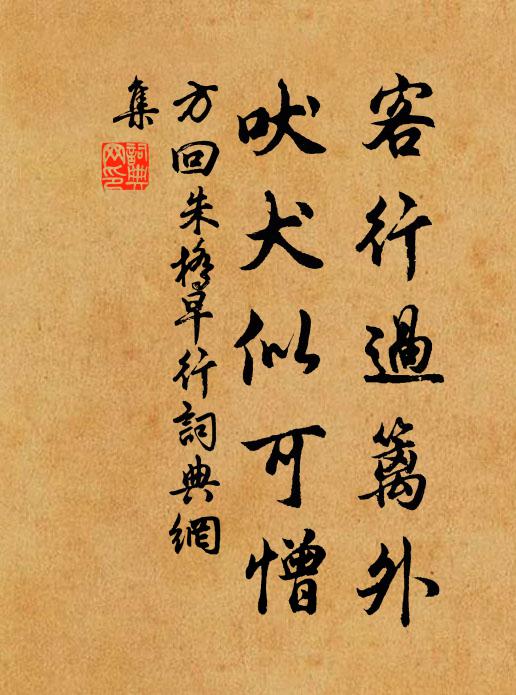 客行過籬外
吠犬似可憎
方回朱橋早行詞典網
集
詞典
网印